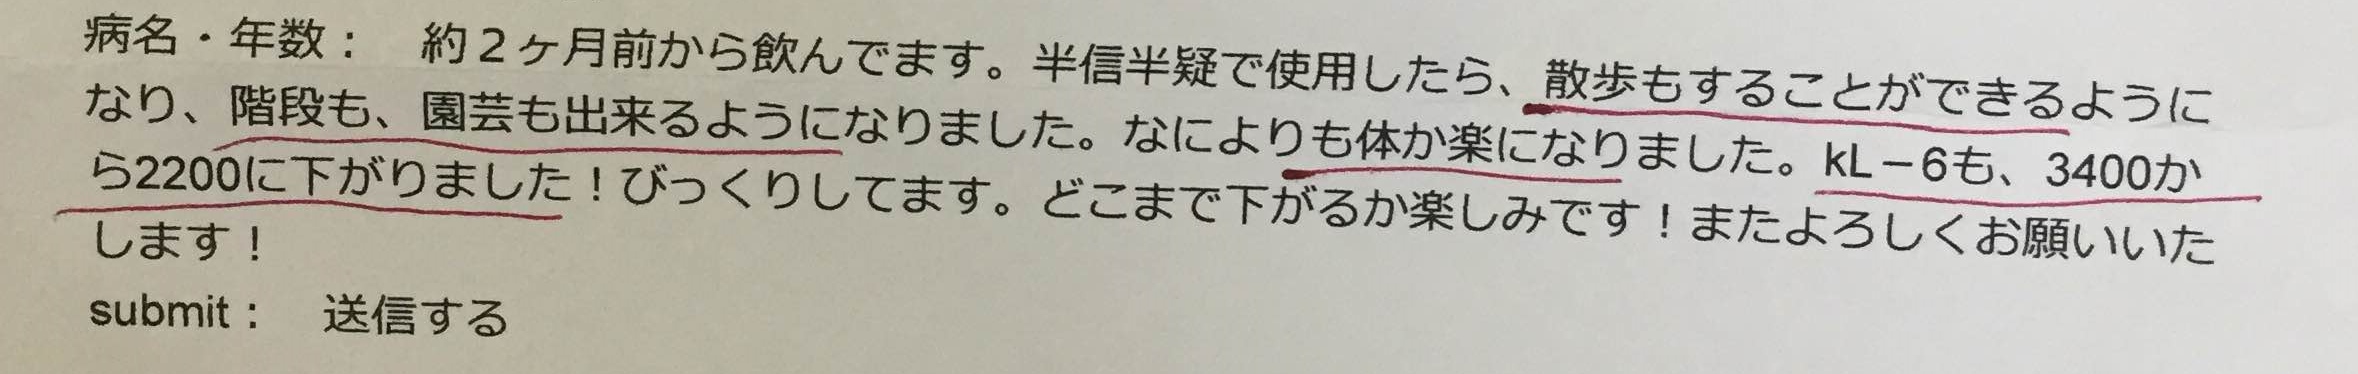 病名・年数：　約２ヶ月前から飲んでます。半信半疑で使用したら、散歩もすることができるように
なり、階段も、園芸も出来るようになりました。なによりも体か楽になりました。kL－6も、3400か
ら2200に下がりました！びっくりしてます。どこまで下がるか楽しみです！またよろしくお願いいた
します！
submit：　送信する